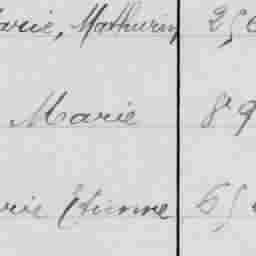 arie, Mathurin 25
Marie 89
arie Etienne 65